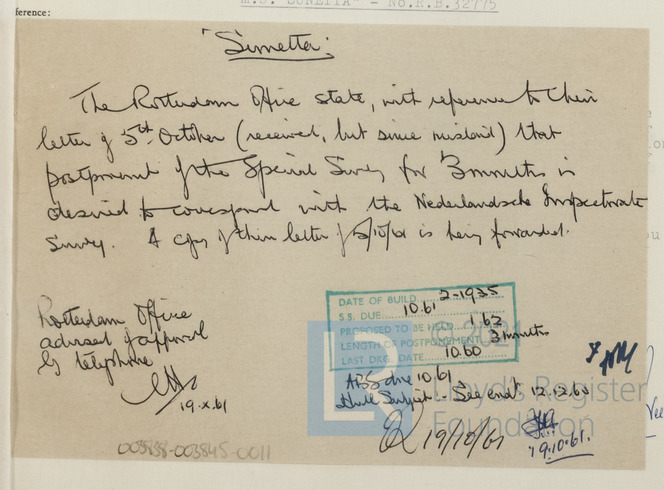 ference:
M.S. "SUNETTA" - No.R.B.32775
'Sunetta'.
The Rotterdam Office state, with reference to their
letter of 5th October (received, but since mislaid) that
postponement of the Special Survey for 3 months is
desired to correspond with the Nederlandsche Inspectorate
Survey. A copy of their letter of 5/10/61 is being forwarded.
Rotterdam Office
advised of approval
by telephone
19.x.61
DATE OF BUILD 2-1935
S.S. DUE 10.61
PROPOSED TO BE HELD 1.62
LENGTH OF POSTPONEMENT 3 months
LAST DKG. DATE 10.60
ABS due 10.61
Hull Subject - See endt 12.12.60
19/10/61
19.10.61.
© 2021
Lloyd's Register
Foundation
LR
003838-003845-0011